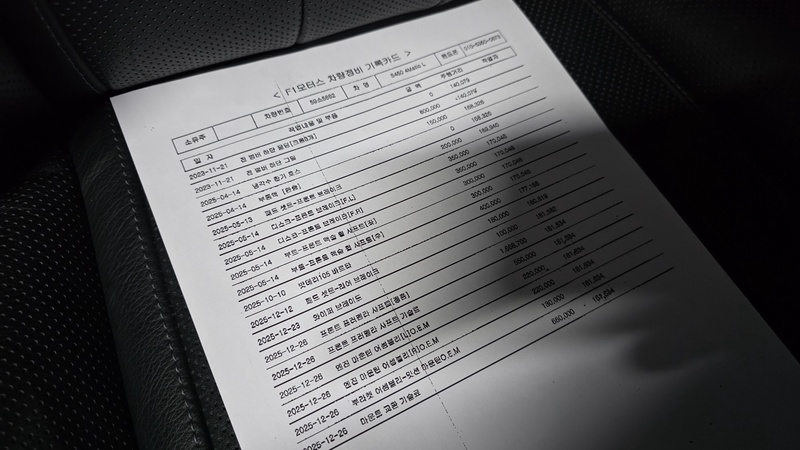 < F1모터스 차량정비 기록카드 >
소유주 차량번호 59소5662 차 명 S450 4Matic L 핸드폰
일 자 작업내용 및 부품 금 액 주행거리
2023-11-21 전 범퍼 하단 몰딩 0 140,079
2023-11-21 전 범퍼 하단 그릴 600,000 140,079
2025-04-14 냉각수 환기 호스 150,000 168,326
2025-04-14 부동액 [완충] 0 168,326
2025-05-13 패드 셋트-프론트 브레이크 200,000 169,940
2025-05-14 디스크-프론트 브레이크[F,L] 350,000 170,048
2025-05-14 디스크-프론트 브레이크[F,R] 350,000 170,048
2025-05-14 부트-프론트 액슬 휠 샤프트[좌] 300,000 170,048
2025-05-14 부트-프론트 액슬 휠 샤프트[우] 300,000 170,048
2025-10-10 밧데리105 바르탄 400,000
2025-12-12 패드 셋트-리어 브레이크 180,000
2025-12-23 와이퍼 브레이드 100,000
2025-12-26 프론트 프러펠라 샤프트 181,634
2025-12-26 프론트 프러펠라 샤프트 기술료 550,000 181,634
2025-12-26 엔진 마운틴 어셈블리[L]O.E.M 220,000 181,634
2025-12-26 엔진 마운틴 어셈블리[R]O.E.M 220,000 181,634
2025-12-26 부라켓 어셈블리-밋션 마운틴O.E.M 181,634
2025-12-26 마운트 교환 기술료 660,000 181,634